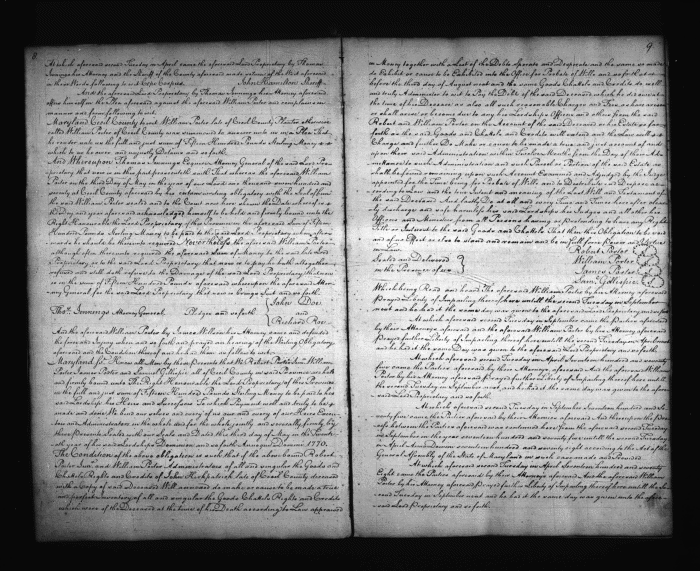 8
At which aforesaid second Tuesday in April came the aforesaid Lord Proprietary by Thomas
Jennings his Attorney and the Sheriff of the County aforesaid made return of the Writ aforesaid
in these Words following to wit Cepi Corpus John Hamilton Sheriff
And the aforesaid Lord Proprietary by Thomas Jennings his Attorney aforesaid
offers himself in the Plea aforesaid against the aforesaid William Porter and complains in
manner and form following to wit
Maryland Cecil County to wit William Porter late of Cecil County Planter otherwise
called William Porter of Cecil County was summoned to answer unto in a Plea that
he render unto the full and just sum of Fifteen Hundred Pounds Sterling Money
which to us he owes and unjustly Detains and so forth
And Whereupon Thomas Jennings Esquire Attorney General of the said Lord
Proprietary that now is in this part prosecuteth saith That whereas the aforesaid William
Porter on the third Day of May in the year of our Lord one thousand seven hundred and
seventy at Cecil County aforesaid by his certain writing obligatory with the Seal of him
the said William Porter sealed and to the Court now here shown the Date whereof is
the day and year aforesaid acknowledged himself to be held and firmly bound unto the
Right Honourable the Lord Proprietary of this Province in the aforesaid sum of Fifteen
Hundred Pounds Sterling Money to be paid to the said Lord Proprietary when after-
wards he should be thereunto required Nevertheless the aforesaid William Porter
although often thereunto required the aforesaid sum of Money to the said late Lord
Proprietary or to the said Lord Proprietary that now is to pay he hath altogether
refused and still doth refuse to the Damage of the said Lord Proprietary that now
is in the sum of Fifteen Hundred Pounds aforesaid whereupon the aforesaid Attor-
ney General for the said Lord Proprietary that now is brings Suit and so forth
John Doe
Thos. Jennings Attorney General Pledges and so forth and
Richard Roe
And the aforesaid William Porter by James his Attorney comes and defends
the force and Injury when and so forth and prays an hearing of the Writing Obligatory
aforesaid and the Condition thereof and he hath them as follows to wit
Maryland Know all men by these Presents that We Robert Porter William
Porter James Porter and Samuel Gillespie all of Cecil County in said Province are held
and firmly bound unto The Right Honourable the Lord Proprietary of this Province
in the full and just sum of Fifteen Hundred Pounds Sterling Money to be paid to his
said Lordship his Heirs and Successors to the which Payment well and truly to be
made and done We bind our selves and every of us our and every of our Heirs Execu-
tors and Administrators in the whole and for the whole jointly and severally firmly by
these Presents Sealed with our Seals and Dated the third day of May in the
year of his said Lordships Dominion and so forth Annoque Domini 1770
The Condition of the above obligation is such that if the above bound Robert
Porter and William Porter Administrators of all and singular the Goods and
Chattels Rights and Credits of John Kirkpatrick late of Cecil County deceased
with a Copy of said Deceased Will annexed do make or cause to be made a true
and perfect Inventory of all and singular the Goods Chattels Rights and Credits
which were of the Deceased at the time of his Death according to Law appraised
9
in Money together with a List of the Debts sperate and desperate and the same so made
do Exhibit or cause to be Exhibited into the Office for Probate of Wills and so forth at or
before the third day of August next and the same Goods Chattels and Credits do well
and truly Administer to wit do Pay the Debts of the said Deceased which he did owe at
the time of his Decease as also all such reasonable Charges and Fees as have arisen
or shall arise or become due to any his Lordships Officers and others from the said
Robert and William Porter on the Account of the said Deceased and his Estate so
forth as the said Goods and Chattels and Credits will extend and the Law will
Charge and further Do Make or cause to be made a true and just account of and
upon their said Administration within Twelve Months from the Day of the Date
of such Administration and such Parcel or Portion of the said Estate as
shall be found remaining upon such Account Examined and Adjudged by the Judge
appointed for the time being for Probate of Wills and to Distribute and Dispose ac-
cording to Law and the true Intent and meaning of the Last Will and Testament of
the said Deceased And lastly Do at all and every Time and Times hereafter clear-
ly discharge and save harmless his said Lordship his Judges and all other his
Officers and Ministers from all Persons having or pretending to have any Right
Title or Interest to the said Goods and Chattels That then this Obligation to be void
and of no Effect or else to stand and remain and be in full force Power and Virtue
Robert Porter
Sealed and Delivered William Porter
in the Presence of us James Porter
Saml. Gillespie
Which being Read and heard The aforesaid William Porter by his Attorney aforesaid
Prayed Liberty of Imparling thereof here untill the second Tuesday in September
next and he had it the same day was given to the aforesaid Lord Proprietary and so forth
At which aforesaid second Tuesday in September the parties aforesaid
by their Attorneys aforesaid and the aforesaid William Porter by his Attorney aforesaid
Prayed further Liberty of Imparling thereof here untill the second Tuesday in April next
and he had it the same Day was given to the aforesaid Lord Proprietary and so forth
At which aforesaid second Tuesday in April Seventeen hundred and seventy
five came the Parties aforesaid by their Attorneys aforesaid And the aforesaid William
Porter by his Attorney aforesaid Prayed further Liberty of Imparling thereof here untill
the second Tuesday in September next and he had it the same day was given to the afore-
said Lord Proprietary and so forth
At which aforesaid second Tuesday in September Seventeen hundred and Se-
venty five came the Parties aforesaid by their Attornies aforesaid And thereupon the Plea
afsd between the Parties aforesaid was continued here from the aforesaid second Tuesday
in September in the year seventeen hundred and seventy five untill the second Tuesday
in April Anno Domini seventeen hundred and seventy eight according to the Act of the
General Assembly of the State of Maryland in such case made and Provided
At which aforesaid second Tuesday in April seventeen hundred and seventy
Eight came the Parties aforesaid by their Attornies aforesaid And the aforesaid William
Porter by his Attorney aforesaid Prayed further Liberty of Imparling thereof here untill the
second Tuesday in September next and he had it the same day was given unto the afore-
said Lord Proprietary and so forth